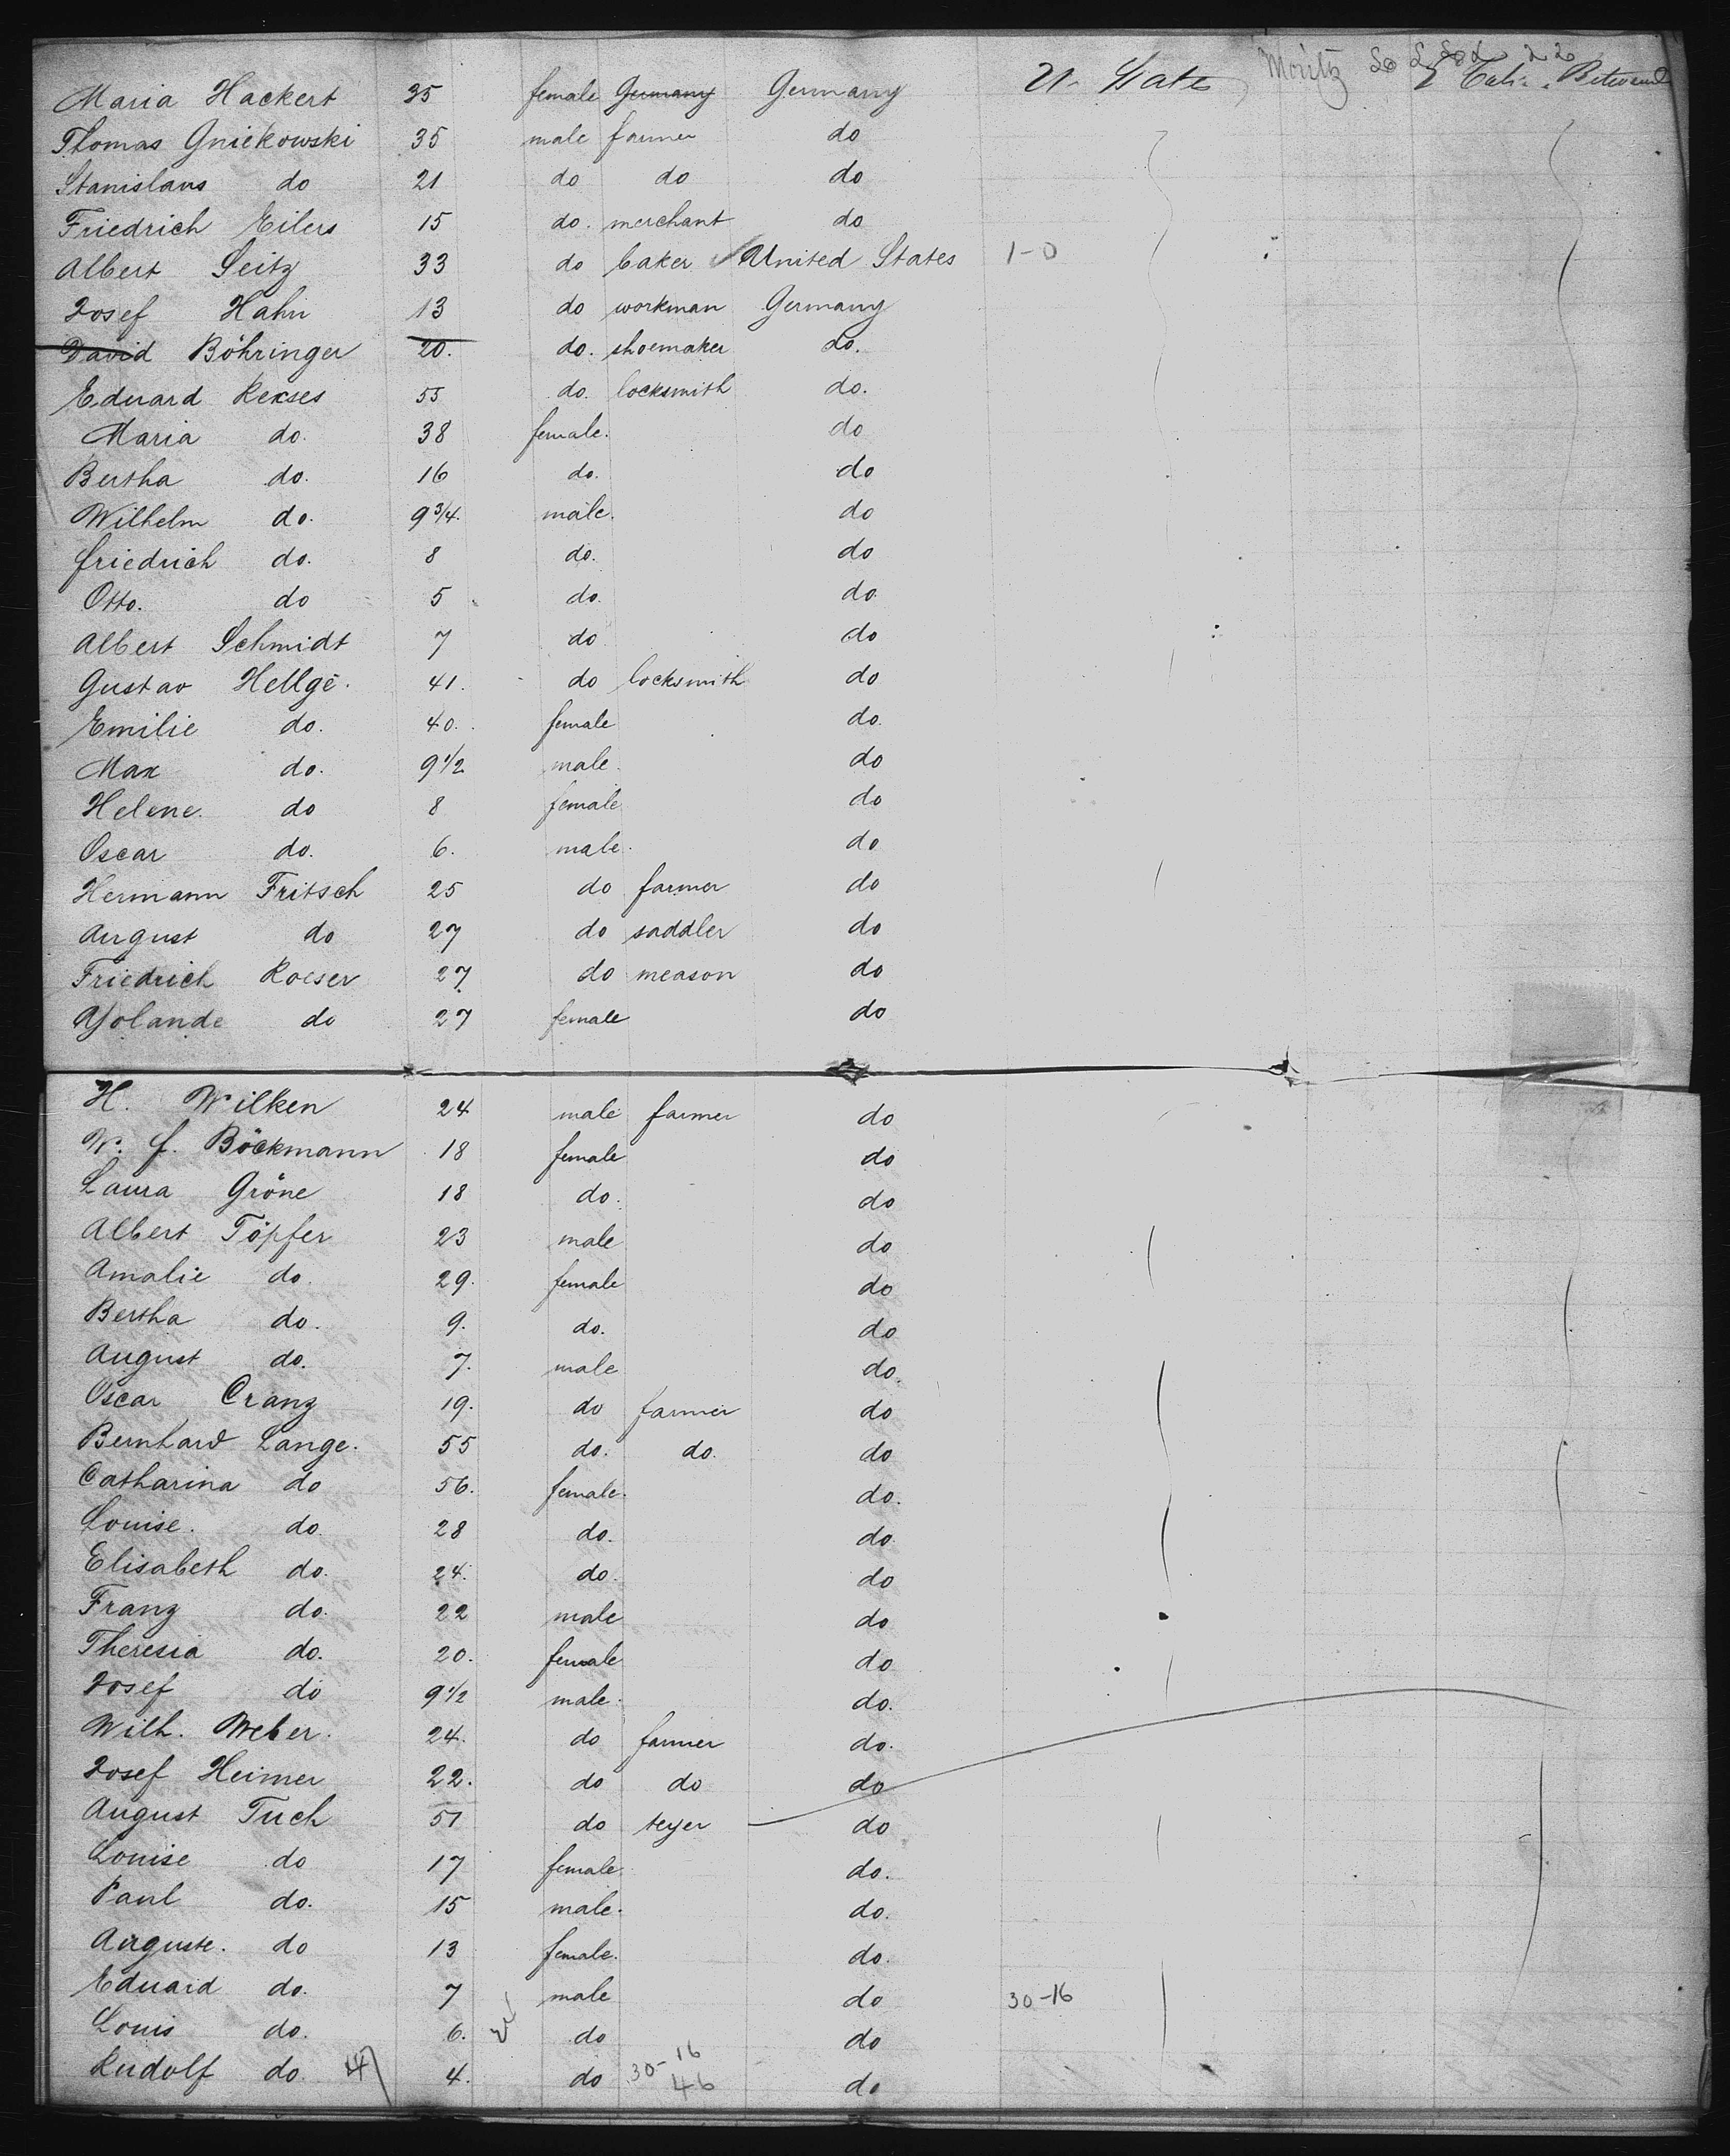 Moritz
Maria Hackert 35 female Germany Germany U. States
Thomas Gnickowski 35 male farmer do
Stanislaus do 21 do do do
Friedrich Eilers 15 do. merchant do
Albert Seitz 33 do baker United States 1-0
Josef Hahn 13 do workman Germany
David Böhringer 20. do. shoemaker do.
Eduard Rexses 55 do. locksmith do.
Maria do. 38 female. do
Bertha do. 16 do. do
Wilhelm do. 9 3/4. male. do
Friedrich do. 8 do. do
Otto. do 5 do. do.
Albert Schmidt 7 do do
Gustav Hellge. 41. do locksmith do
Emilie do. 40. female do.
Max do. 9 1/2 male. do
Helene. do 8 female do
Oscar do. 6. male. do
Hermann Fritsch 25 do farmer do
August do 27 do saddler do
Friedrich Roeser 27 do meason do
Yolande do 27 female do
H. Wilken 24 male farmer do
W. f. Böckmann 18 female do
Laura Gröne 18 do. do
Albert Töpfer 23 male do
Amalie do. 29. female do
Bertha do. 9. do. do
August do. 7. male do.
Oscar Cranz 19. do farmer do
Bernhard Lange. 55 do. do. do
Catharina do 56. female. do.
Louise. do. 28 do. do
Elisabeth do. 24. do. do
Franz do. 22 male do
Theresia do. 20. female do
Josef do 9 1/2 male. do.
Wilh. Weber. 24. do farmer do.
Josef Heimer 22. do do do
August Tuch 51 do teyer do
Louise do 17 female. do.
Paul do. 15 male. do.
Auguste. do 13 female. do.
Eduard do. 7 male do 30-16
Louis do. 6. do do
Rudolf do. 4. do 30-16 do
46